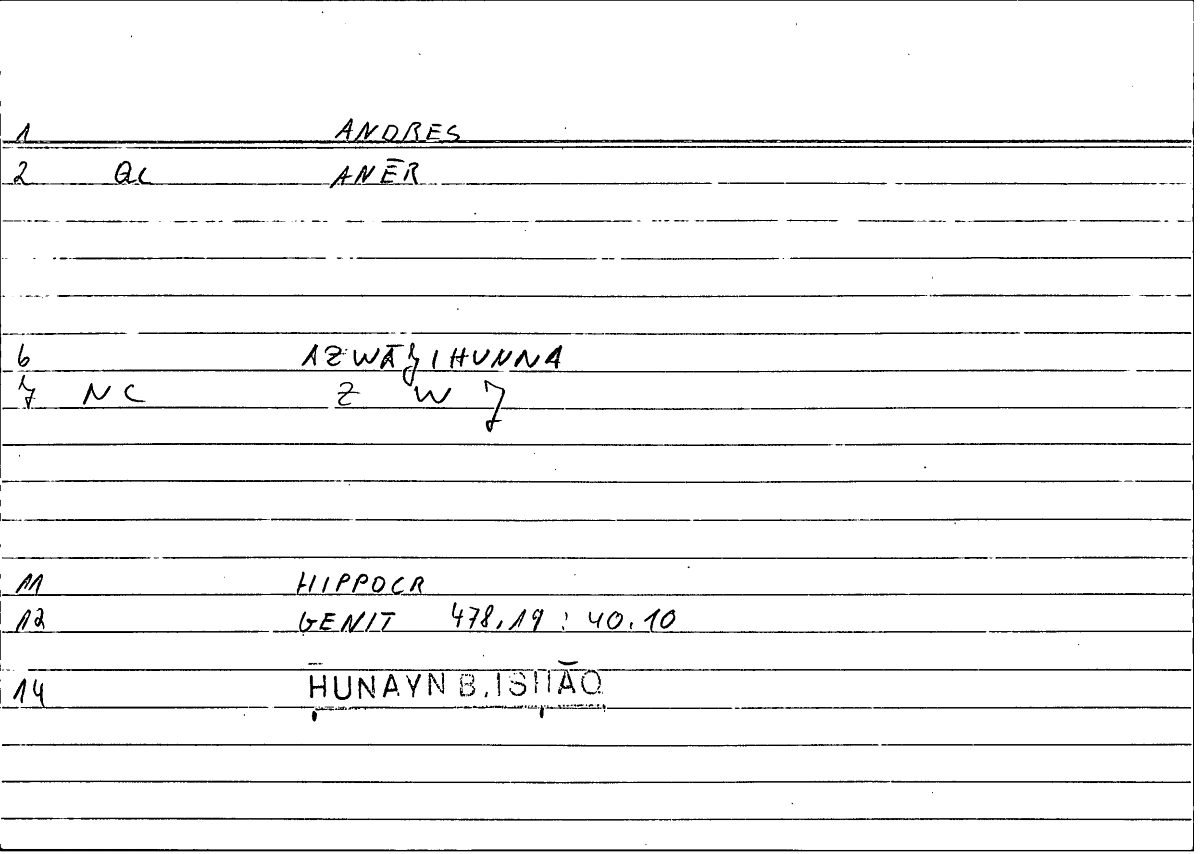 1 ANDRES
2 QC ANĒR
6 AZWĀǧIHUNNA
7 NC Z W ǧ
11 HIPPOCR
12 GENIT 478,19 : 40.10
14 ḤUNAYN B. ISḤĀQ